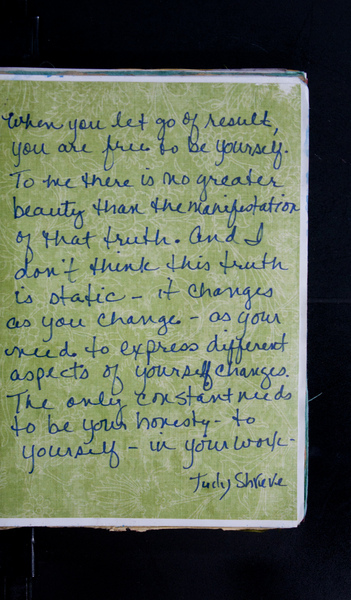 When you let go of results,
you are free to be yourself.
To me there is no greater
beauty than the manifestation
of that truth. And I
don't think this truth
is static - it changes
as you change - as your
need to express different
aspects of yourself changes.
The only constant needs
to be your honesty - to
yourself - in your work -
Judy Shreve